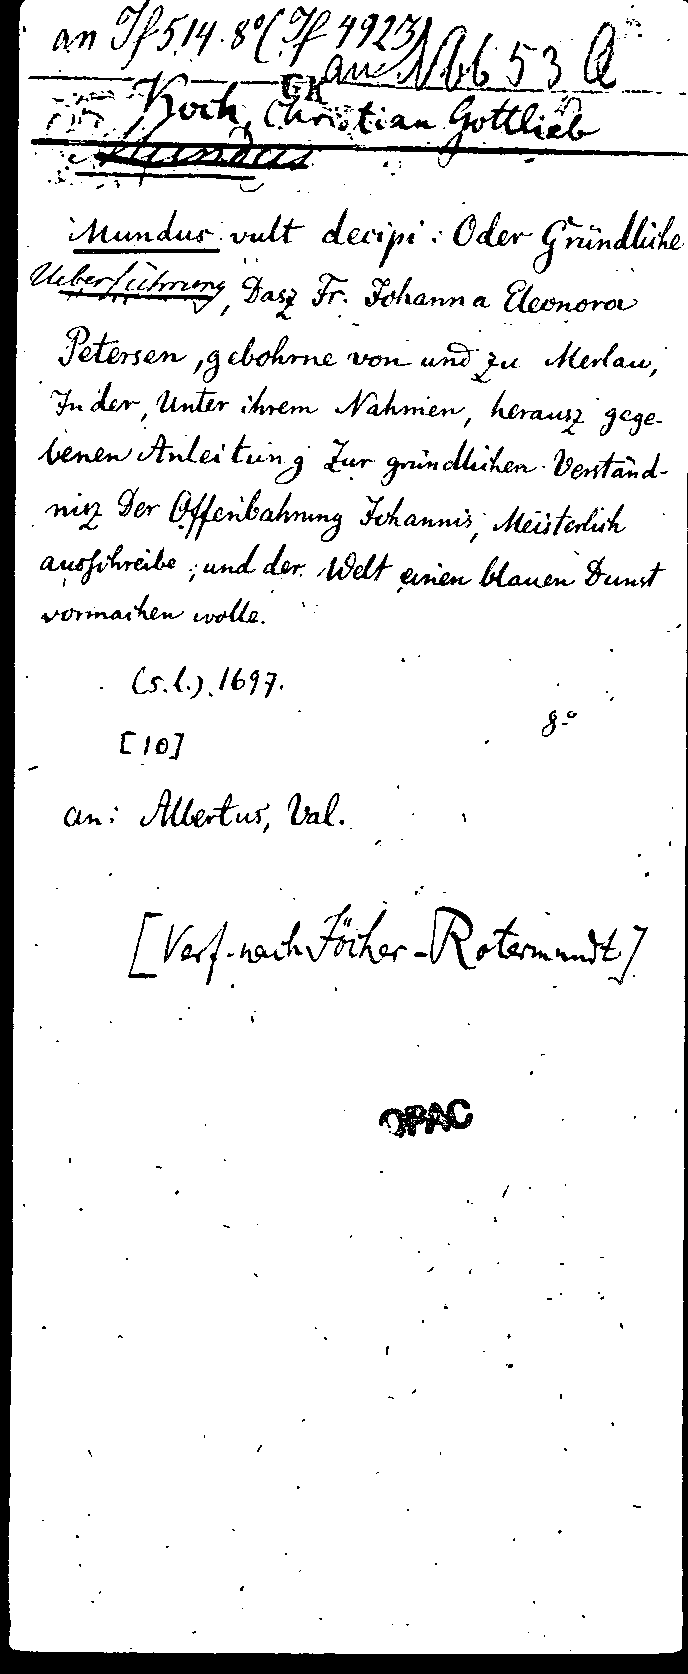 an If 514.8° (If 4923)
an Nbb 53 Q
GK
Koch, Christian Gottlieb
Mundus
Mundus vult decipi: Oder Gründliche
Ueberführung, Dasz Fr. Johanna Eleonora
Petersen, gebohrne von und zu Merlau,
In der, Unter ihrem Nahmen, herausz gege-
benen Anleitung Zur gründlichen Verständ-
nisz Der Offenbahrung Johannis, Meisterlich
ausschreibe, und der Welt einen blauen Dunst
vormachen wolle.
(s.l.). 1697.
8°
[10]
an: Albertus, Val.
[Verf. nach Jöcher-Rotermundt]
OPAC